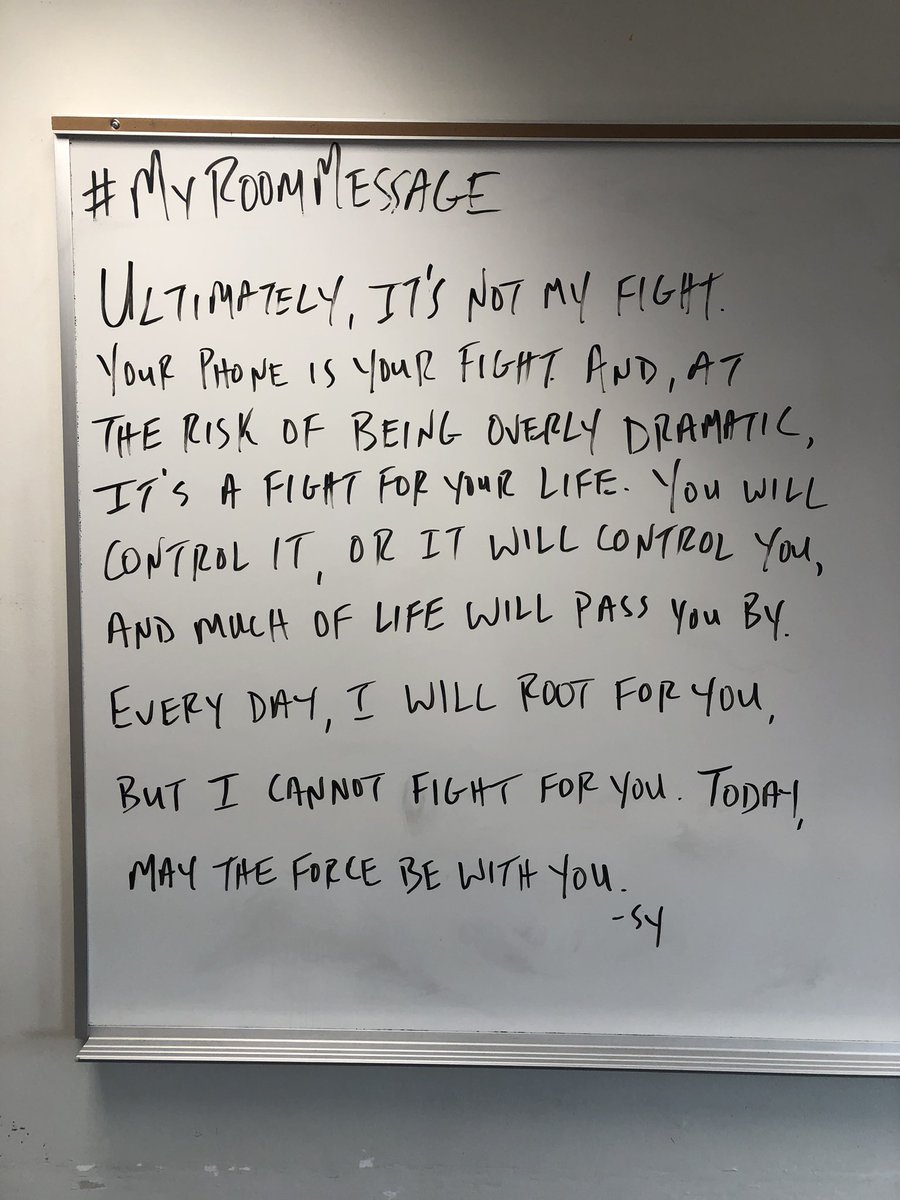 #MYROOMMESSAGE
ULTIMATELY, IT'S NOT MY FIGHT.
YOUR PHONE IS YOUR FIGHT. AND, AT
THE RISK OF BEING OVERLY DRAMATIC,
IT'S A FIGHT FOR YOUR LIFE. YOU WILL
CONTROL IT, OR IT WILL CONTROL YOU,
AND MUCH OF LIFE WILL PASS YOU BY.
EVERY DAY, I WILL ROOT FOR YOU,
BUT I CANNOT FIGHT FOR YOU. TODAY,
MAY THE FORCE BE WITH YOU.
-SY